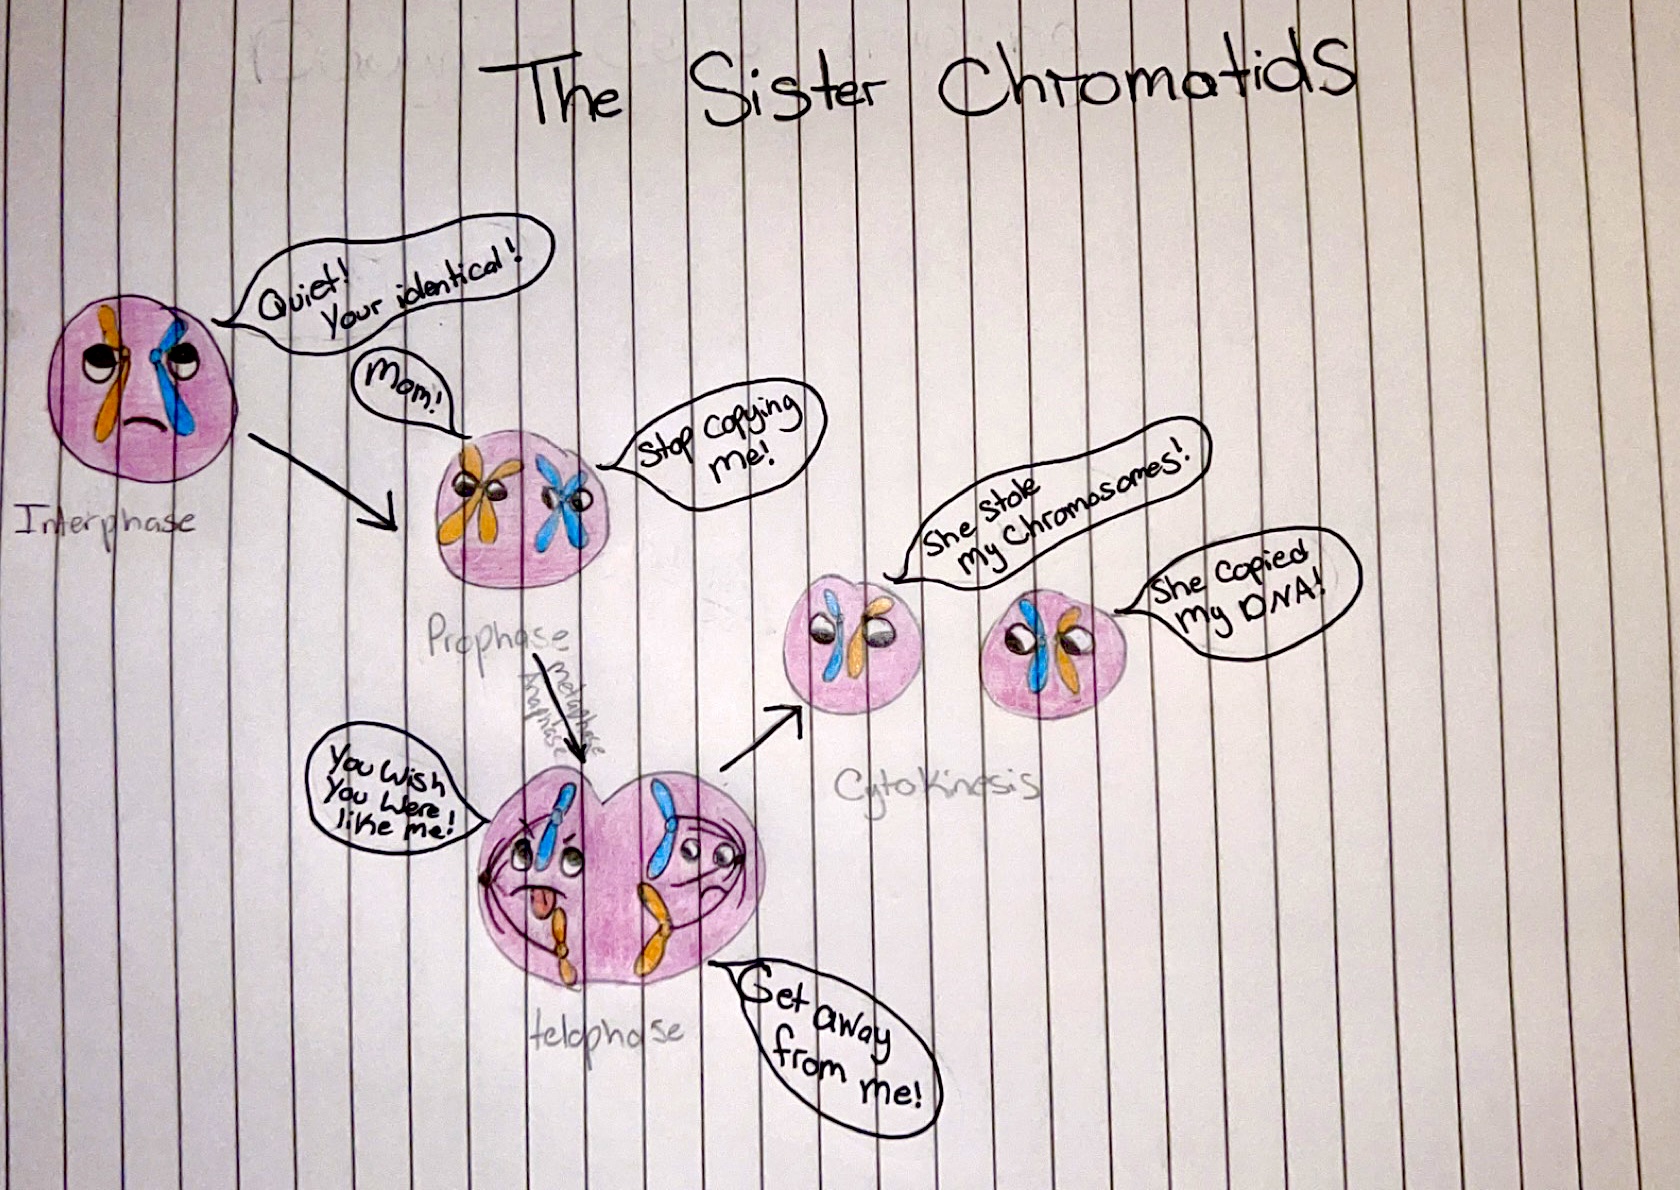 The Sister Chromatids
Quiet!
Your identical!
Interphase
Mom!
Stop copying
me!
Prophase
Metaphase
Anaphase
You wish
You were
like me!
Get away
from me!
telophase
She stole
my Chromosomes!
She copied
my DNA!
Cytokinesis